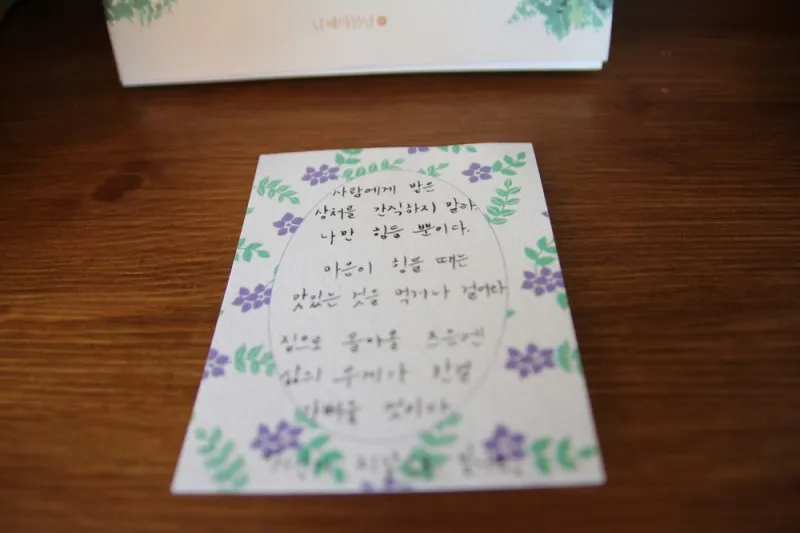 사람에게 받은
상처를 간직하지 말라
나만 힘들 뿐이다.
마음이 힘들 때는
맛있는 것을 먹거나 걸어라
집으로 돌아올 즈음엔
삶의 무게가 한결
가벼울 것이다